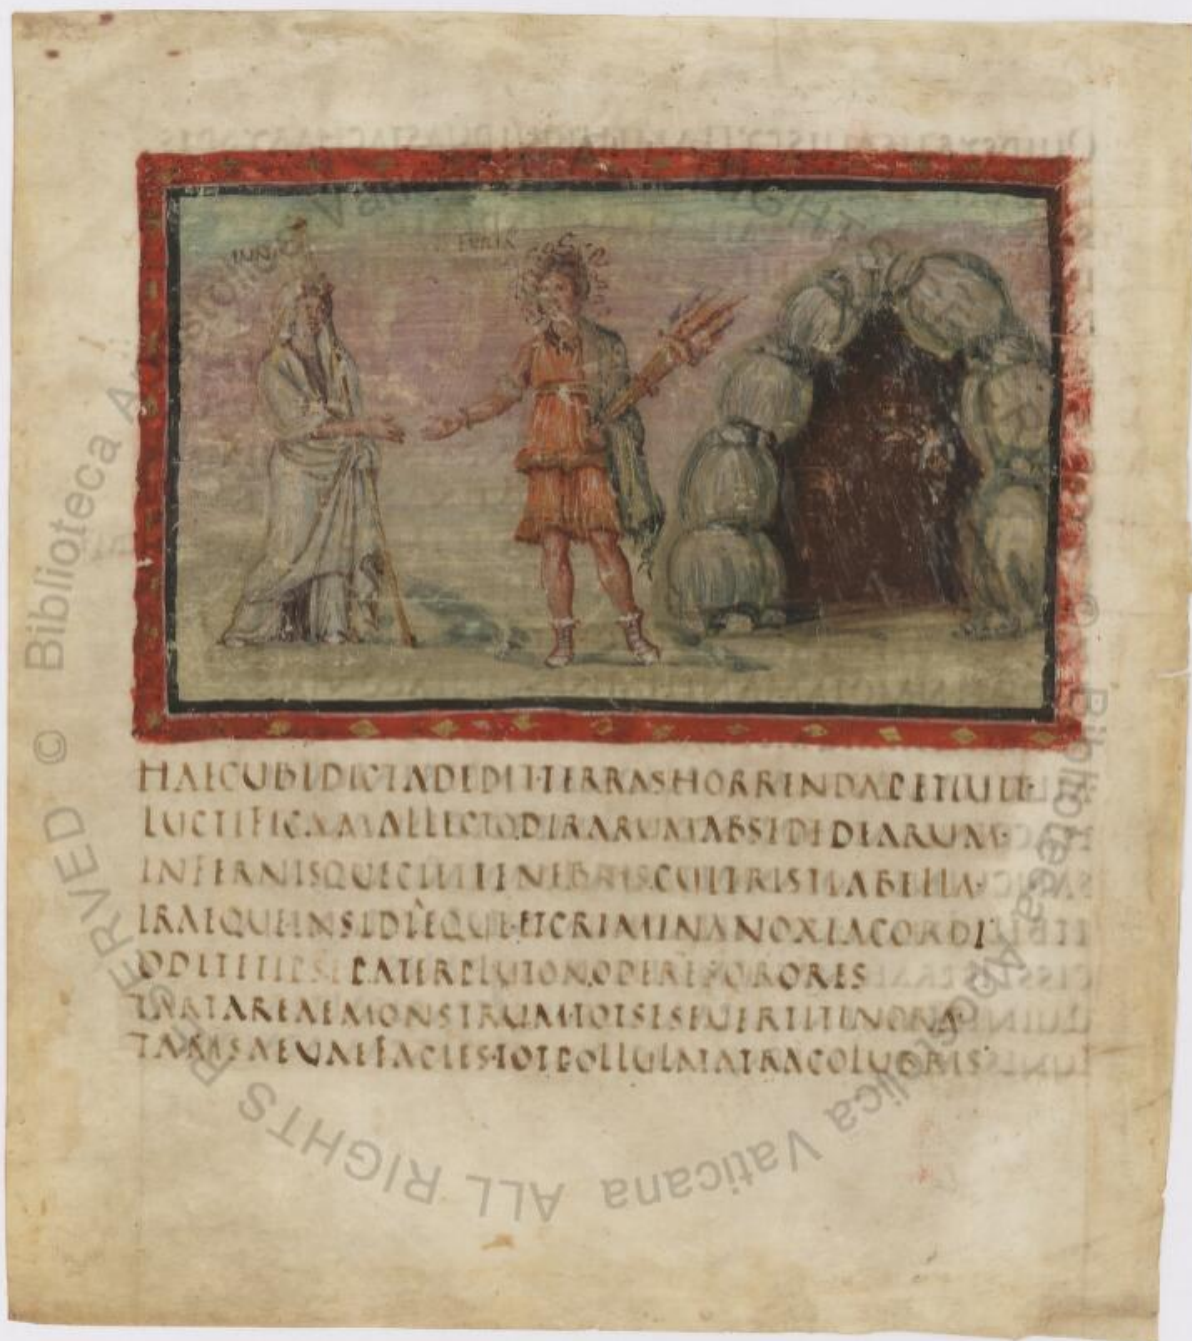 IUNO
HAECUBIDICTADEDIT·TERRASHORRENDAPETIUIT·
LUCTIFICAMALLECTO·DIRARUMABSEDEDEARUM·
INFERNISQUECIETTENEBRIS·CUITRISTIABELLA·
IRAEQUE·INSIDIEQUE·ETCRIMINANOXIACORDI·
ODITETIPSEPATERPLUTON·ODERESORORES
TARTAREAEMONSTRUM·TOTSESEUERTITINORA
TAMSAEUAEFACIES·TOTPOLLULATATRACOLUBRIS
© Biblioteca Apostolica Vaticana ALL RIGHTS RESERVED